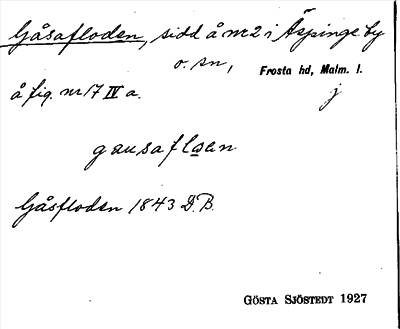 Gåsafloden, sidd å nr 2 i Äspinge by
o. sn, Frosta hd, Malm. l.
å fig. nr 17 IV a. j
gausafloan
Gåsfloden 1843 D.B.
GÖSTA SJÖSTEDT 1927